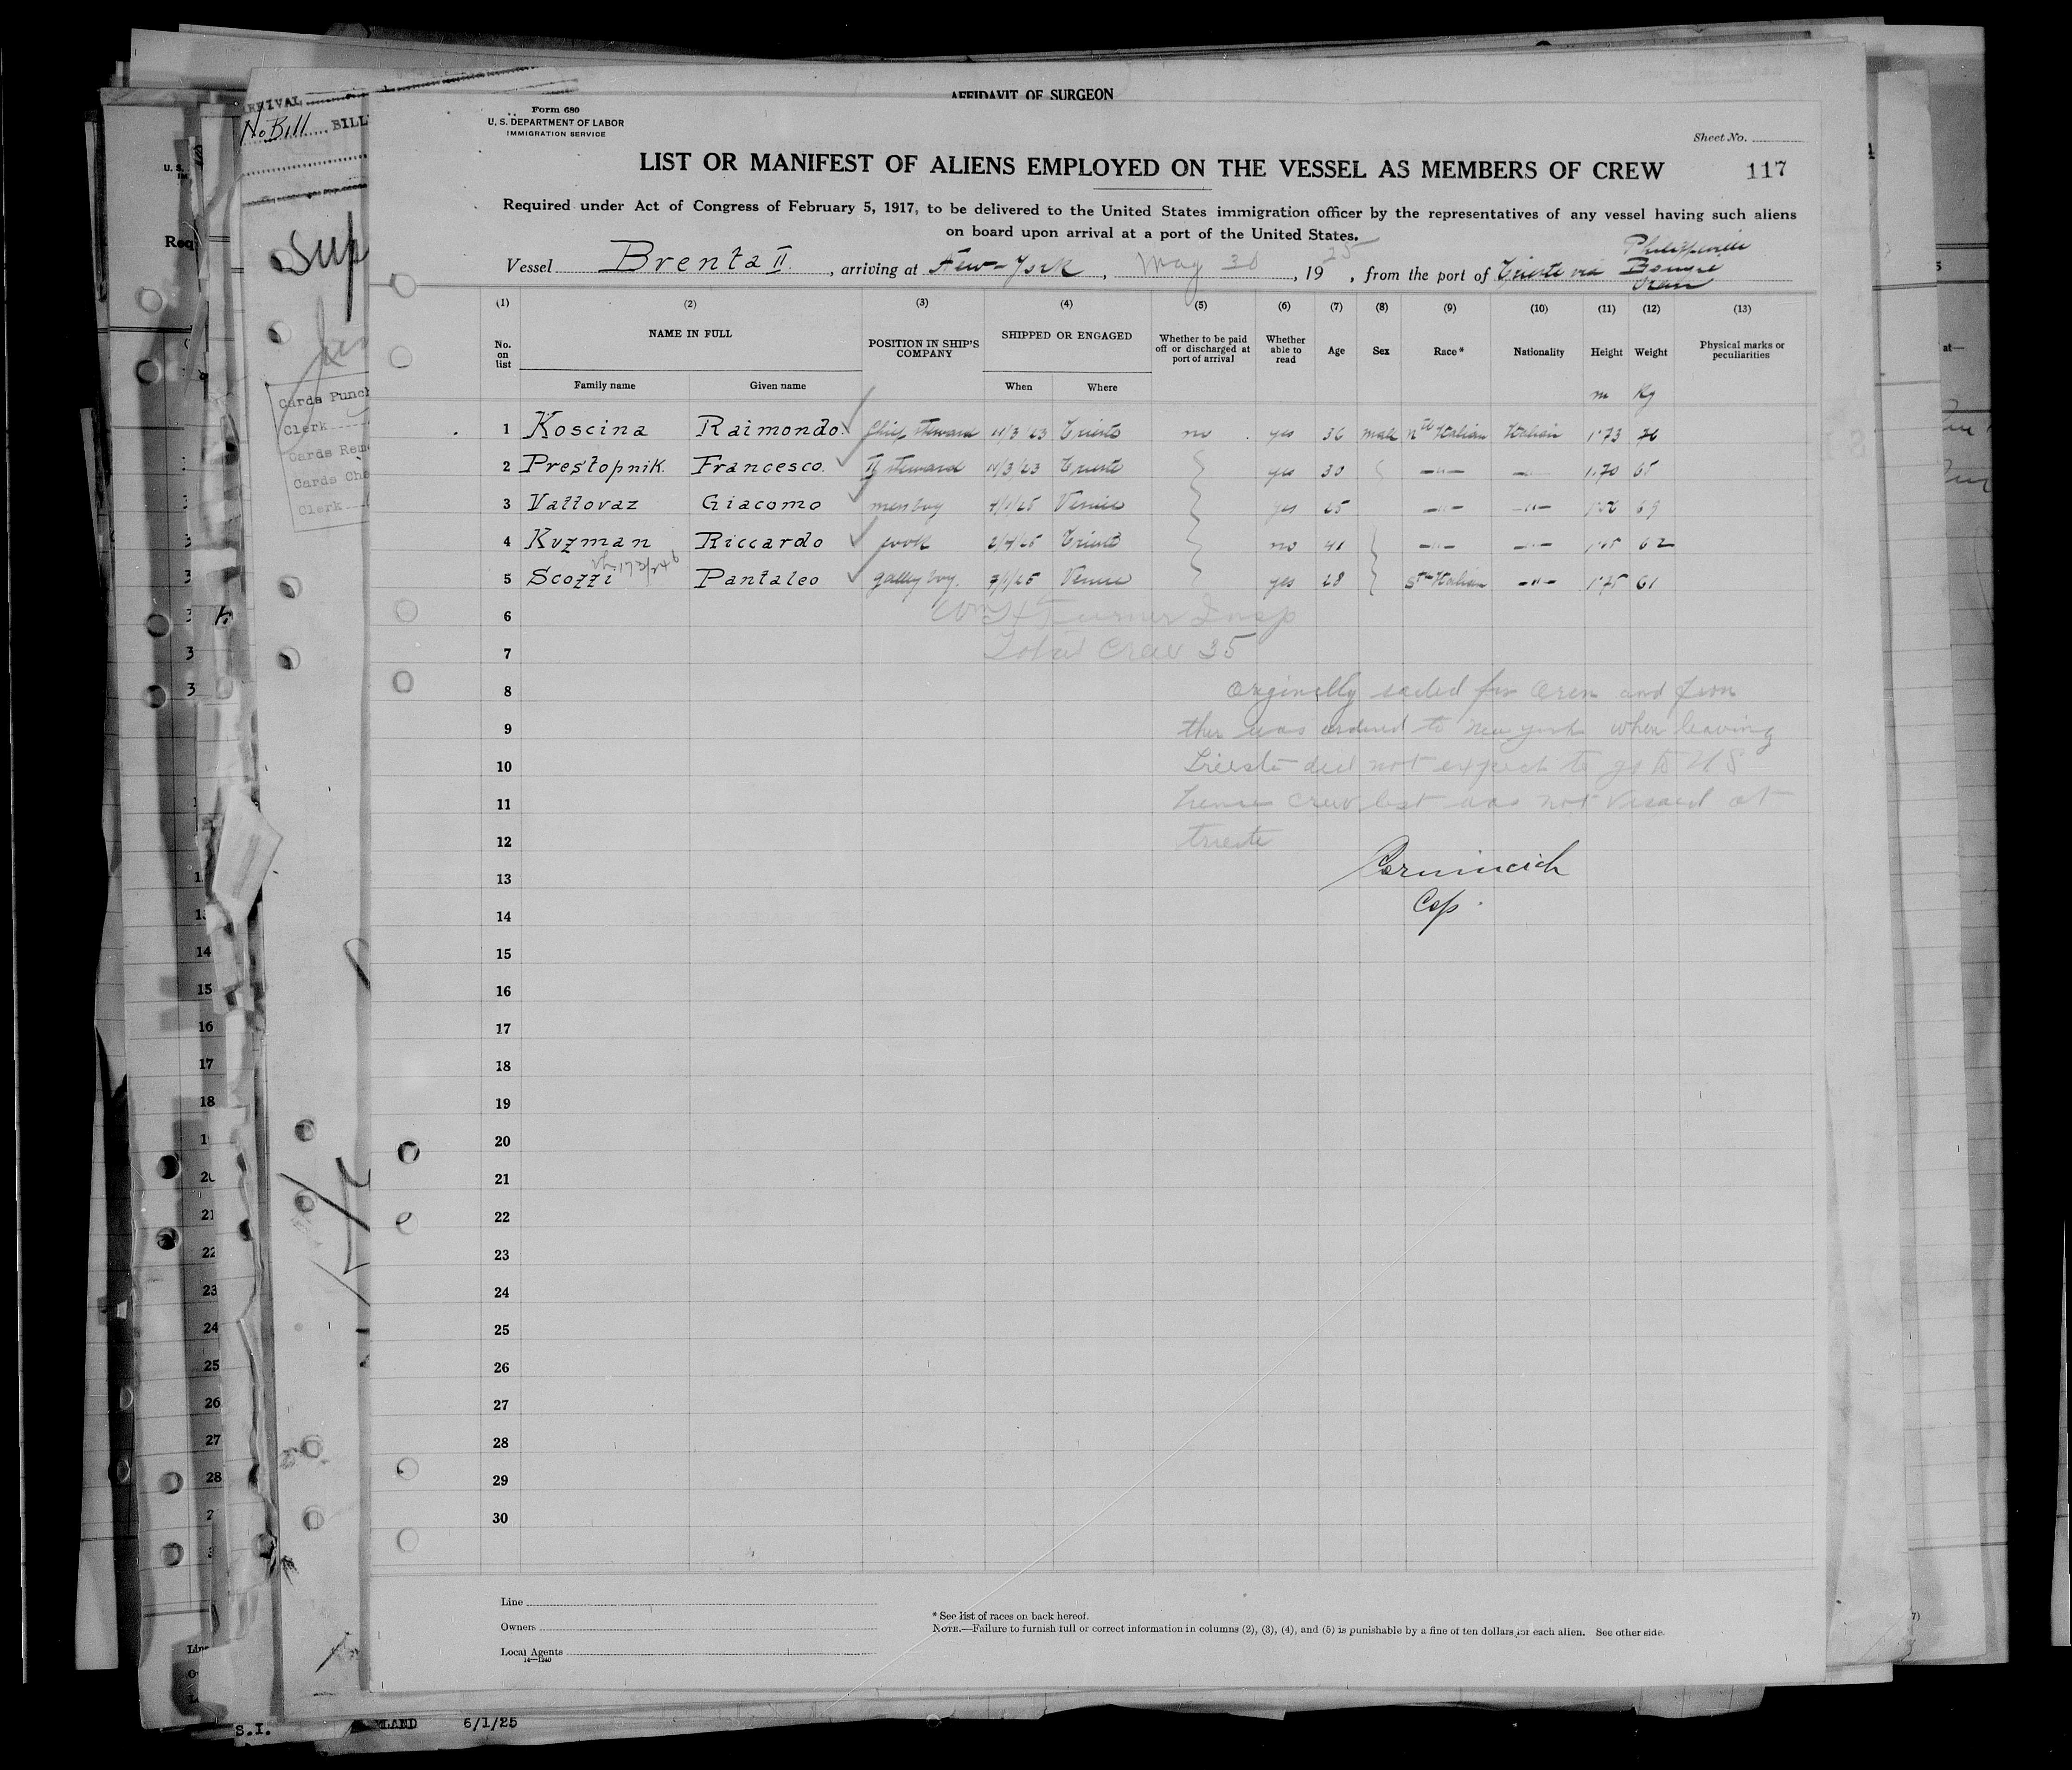 AFFIDAVIT OF SURGEON
Form 680
U. S. DEPARTMENT OF LABOR
IMMIGRATION SERVICE
Sheet No.
LIST OR MANIFEST OF ALIENS EMPLOYED ON THE VESSEL AS MEMBERS OF CREW
117
Required under Act of Congress of February 5, 1917, to be delivered to the United States immigration officer by the representatives of any vessel having such aliens
on board upon arrival at a port of the United States.
Vessel Brenta II, arriving at New-York, May 30, 1925, from the port of Trieste via Philippeville Bougie Oran
(1) (2) (3) (4) (5) (6) (7) (8) (9) (10) (11) (12) (13)
No. on list NAME IN FULL POSITION IN SHIP'S COMPANY SHIPPED OR ENGAGED Whether to be paid off or discharged at port of arrival Whether able to read Age Sex Race* Nationality Height Weight Physical marks or peculiarities
Family name Given name When Where m Kg
1 Koscina Raimondo Chief steward 11/3/23 Trieste no yes 36 male Nth Italian Italian 1.73 76
2 Prestopnik Francesco II steward 11/3/23 Trieste yes 30 -"- -"- 1.70 65
3 Vattovaz Giacomo messboy Venice yes 25 -"- -"- 69
4 Kuzman Riccardo cook Trieste no 41 -"- -"- 62
5 Scozzi Pantaleo galley boy Venice yes 28 Sth Italian -"- 1.75 61
6 Turner Insp
7 Total Crew 35
8 Originally sailed for Oran and from
9 ther was ordered to New York when leaving
10 Trieste did not expect to go to U S
11 hence crew list was not visaed at
12 trieste
13
Cap.
14
15
16
17
18
19
20
21
22
23
24
25
26
27
28
29
30
Line
Owners
Local Agents
14—1240
* See list of races on back hereof.
NOTE.—Failure to furnish full or correct information in columns (2), (3), (4), and (5) is punishable by a fine of ten dollars for each alien. See other side.
No Bill BILL
Sup
Cards Punch
Clerk
Cards
Cards Che
Clerk
S.I. 6/1/25